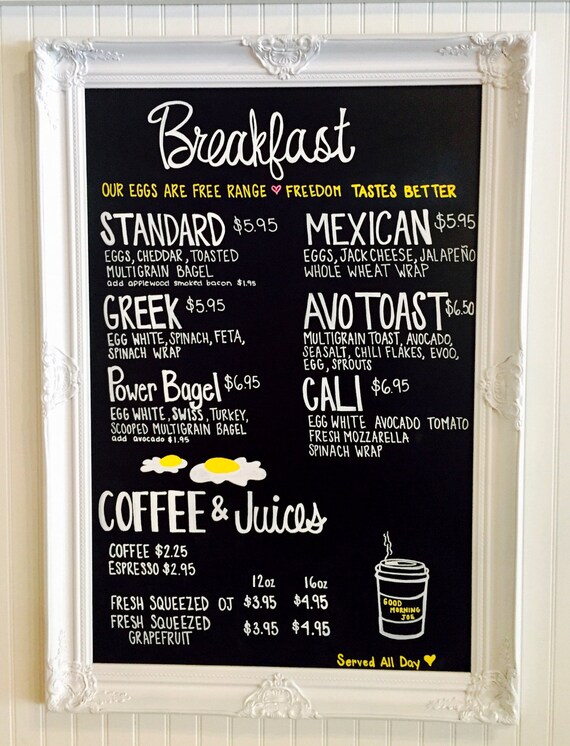 Breakfast
OUR EGGS ARE FREE RANGE ♡ FREEDOM TASTES BETTER
STANDARD $5.95
EGGS, CHEDDAR, TOASTED
MULTIGRAIN BAGEL
add applewood smoked bacon $1.95
GREEK $5.95
EGG WHITE, SPINACH, FETA,
SPINACH WRAP
Power Bagel $6.95
EGG WHITE, SWISS, TURKEY,
SCOOPED MULTIGRAIN BAGEL
add avocado $1.95
MEXICAN $5.95
EGGS, JACK CHEESE, JALAPEÑO
WHOLE WHEAT WRAP
AVO TOAST $6.50
MULTIGRAIN TOAST, AVOCADO,
SEA SALT, CHILI FLAKES, EVOO,
EGG, SPROUTS
CALI $6.95
EGG WHITE AVOCADO TOMATO
FRESH MOZZARELLA
SPINACH WRAP
COFFEE & Juices
COFFEE $2.25
ESPRESSO $2.95
12oz 16oz
FRESH SQUEEZED OJ $3.95 $4.95
FRESH SQUEEZED
GRAPEFRUIT $3.95 $4.95
GOOD
MORNING
JOE
Served All Day ♥